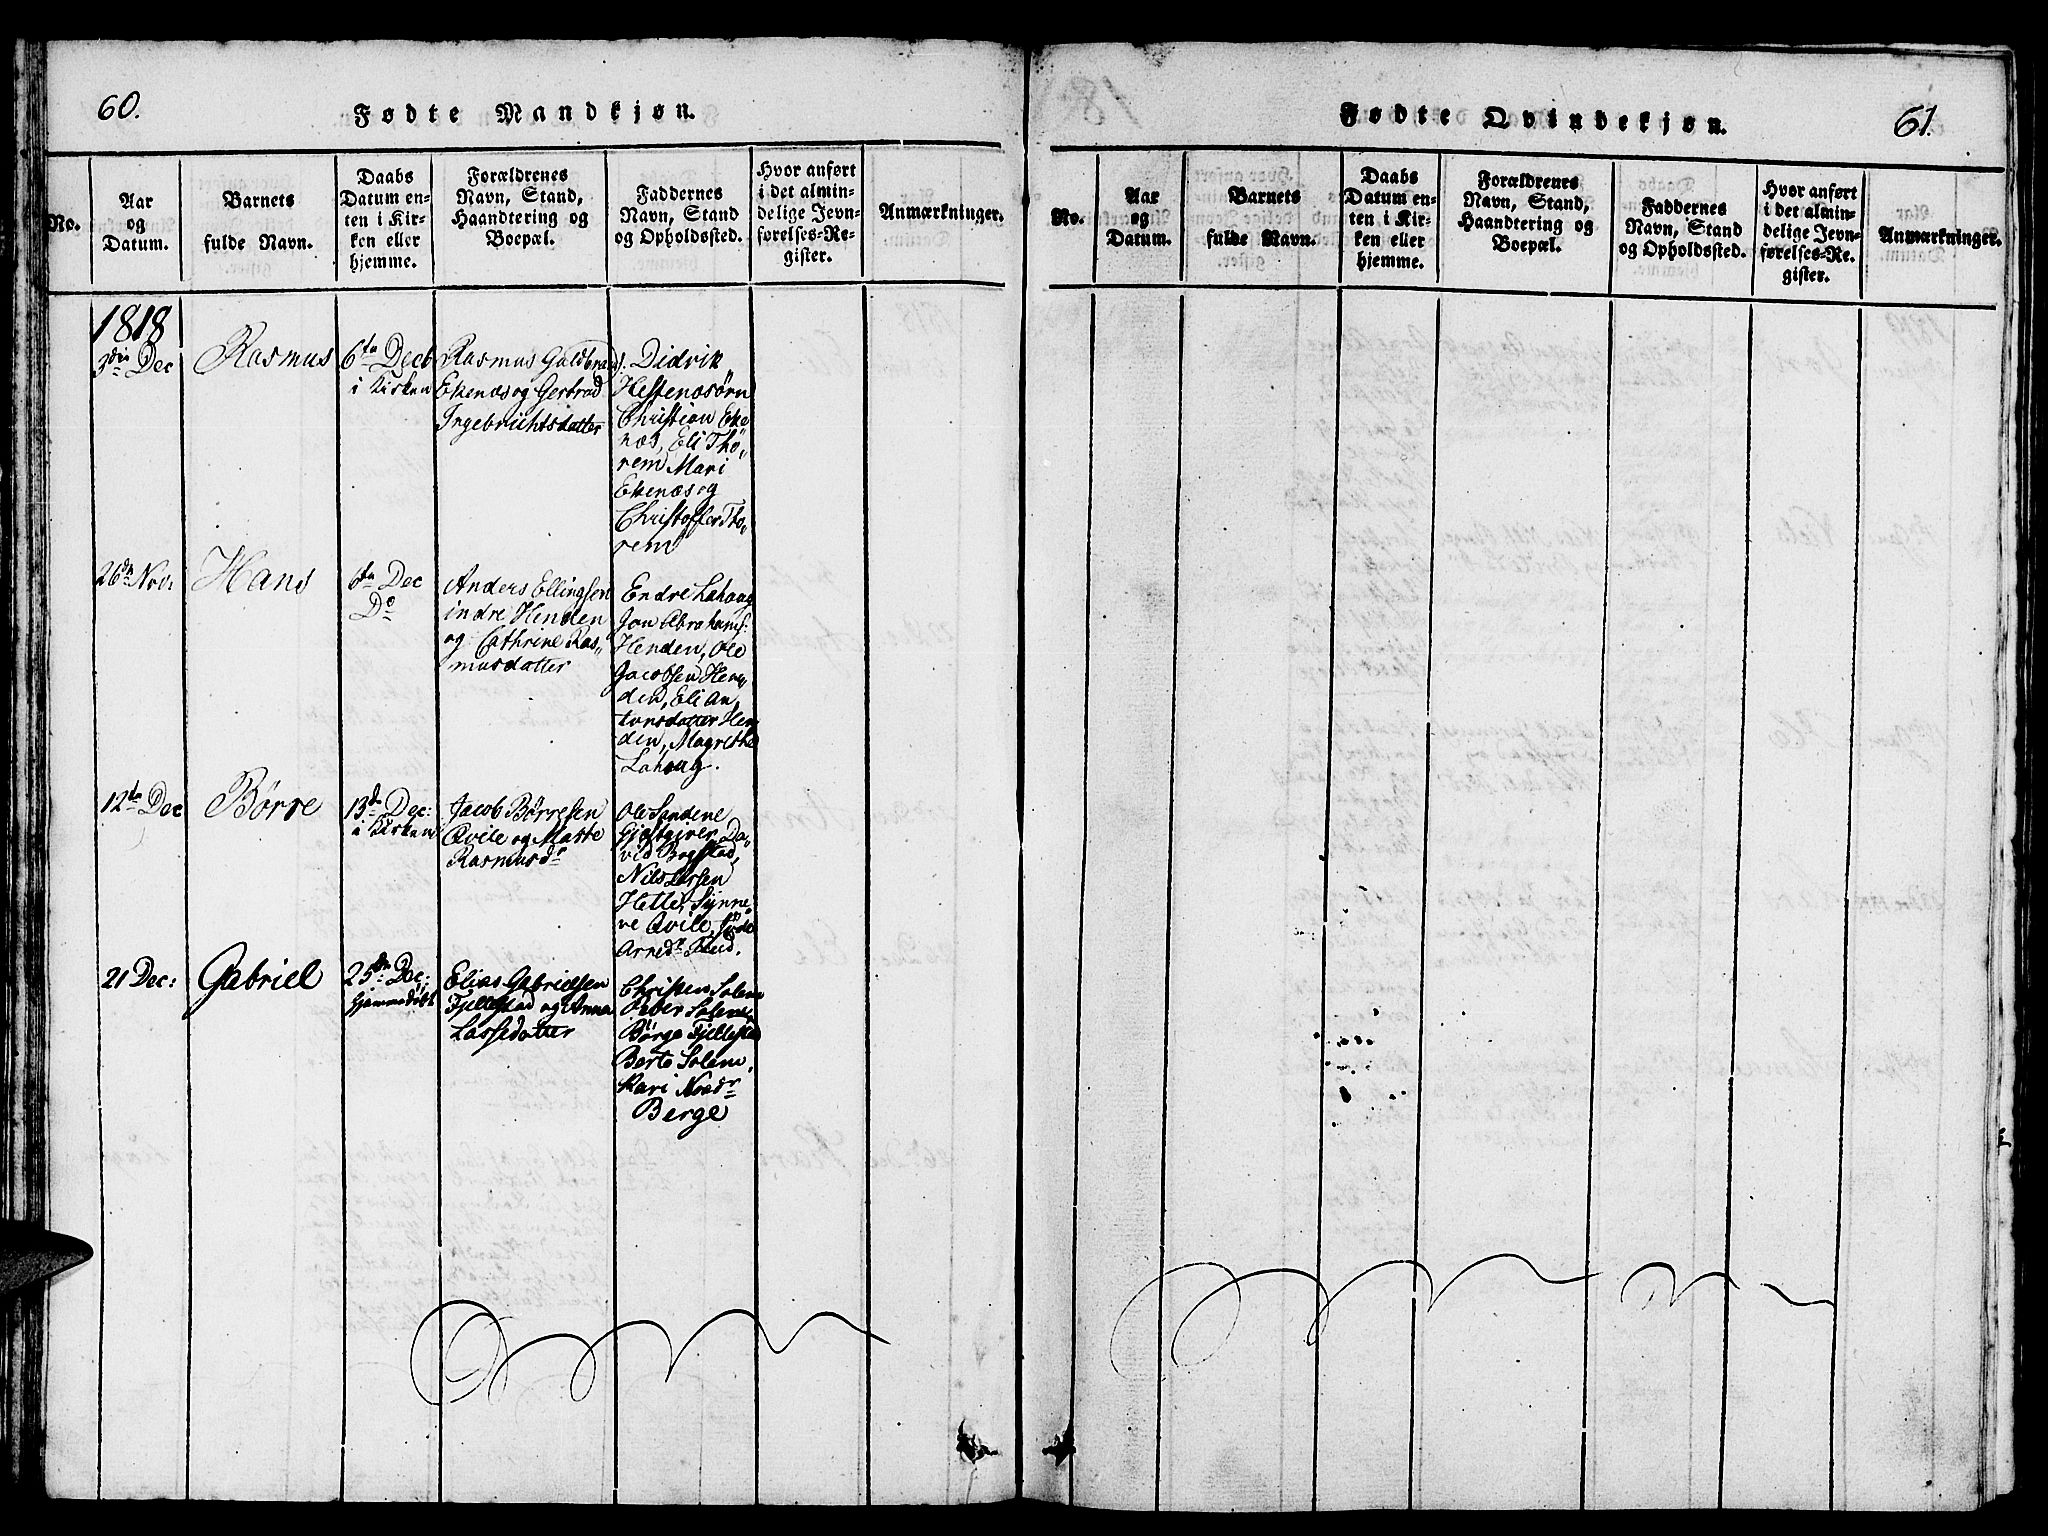 60.
Fødte Mandkjøn.
No.
Aar
og
Datum.
Barnets
fulde Navn.
Daabs
Datum en-
ten i Kir-
ken eller
hjemme.
Forældrenes
Navn, Stand,
Haandtering og
Boepæl.
Faddernes
Navn, Stand
og Opholdssted.
Hvor anført
i det almin-
delige Jevn-
førelses-Re-
gister.
Anmærkninger.
1818
3die Dec
Rasmus
6te Decb
i Kirken
Rasmus Guldbrands:
Ekenæs og Gertrud
Ingebrichtsdatter
Didrik
Hestenæsørn
Christian Eke
næs, Eli Tho„
rem Mari
Ekenæs og
Christoffer Tho„
rem
26de Novr
Hans
6te Dec
Do
Anders Ellingsen
indre Hinden
og Cathrine Ras„
musdatter
Endre Lahaug
Jon Abrahams:
Henden, Ole
Jacobsen Hen„
den, Eli An„
tonsdatter Hen
den, Magrethe
Lahaug.
12te Dec
Børre
13de Dec:
i Kirken
Jacob Børresen
Qvile og Matte
Rasmusdr
Ole Sandene
Gjestgiver, Da„
vid Bogstad,
Nils Larsen
Hette, Synne„
ve Qvile,
Arnedr
21 Dec:
Gabriel
25de Dec:
hjemmedøbt
Elias Gabrielsen
Fjellestad og Anna
Lassedatter
Christen Solem
Peder Solem,
Børge Fjellestad
Berte Solem,
Kari
Berge
Fødte Qvindekjøn.
61.
No.
Aar
og
Datum.
Barnets
fulde Navn.
Daabs
Datum en-
ten i Kir-
ken eller
hjemme.
Forældrenes
Navn, Stand,
Haandtering og
Boepæl.
Faddernes
Navn, Stand
og Opholdssted.
Hvor anført
i det almin-
delige Jevn-
førelses-Re-
gister.
Anmærkninger.